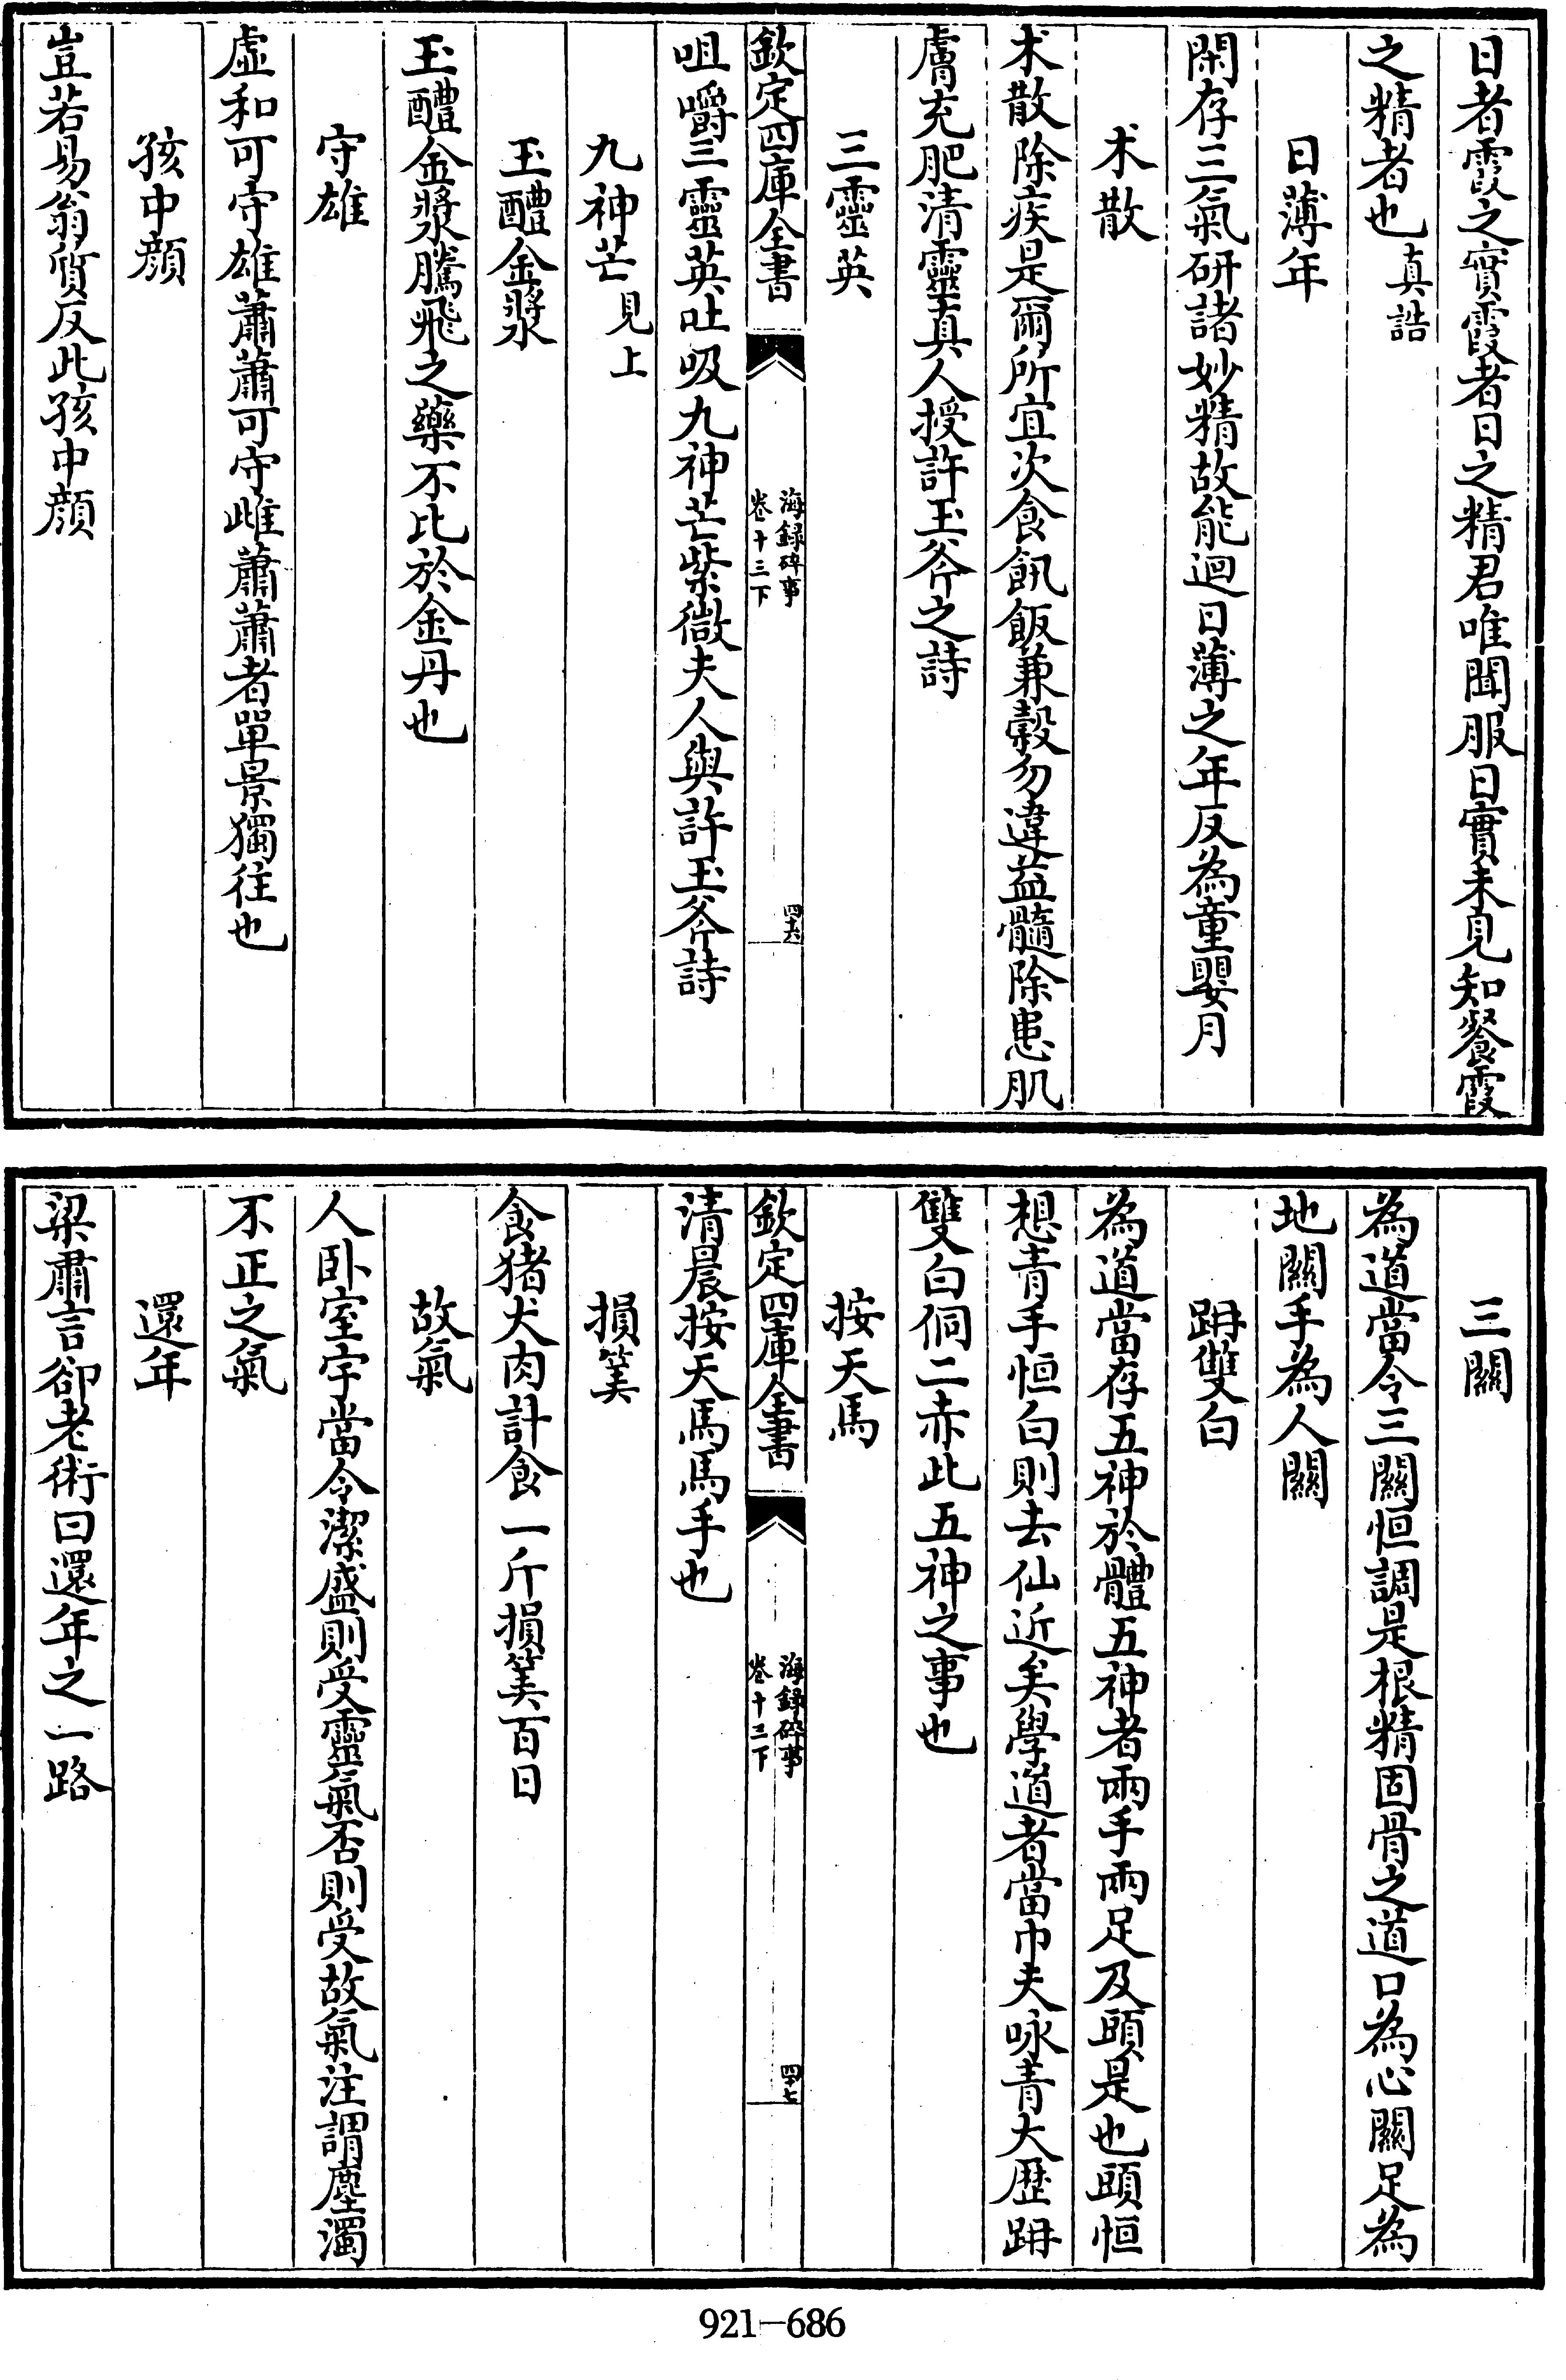 日者霞之實霞者日之精君唯聞服日實未見知餐霞
之精者也真誥
日薄年
閑存三氣研諸妙精故能迴日薄之年反為童嬰月
术散
术散除疾是爾所宜次食䭀飯兼穀勿違益髓除患肌
膚充肥清靈真人授許玉斧之詩
三靈英
欽定四庫全書
海録碎事
卷十三下
四十六
咀嚼三靈英吐吸九神芒紫微夫人與許玉斧詩
九神芒見上
玉醴金漿
玉醴金漿騰飛之藥不比於金丹也
守雄
虛和可守雄蕭蕭可守雌蕭蕭者單景獨往也
孩中顔
豈若易翁質反此孩中顔
三關
為道當令三關恒調是根精固骨之道口為心關足為
地關手為人關
跚雙白
為道當存五神於體五神者兩手兩足及頭是也頭恒
想青手恒白則去仙近矣學道者當巾夫咏青大歷跚
雙白徊二赤此五神之事也
按天馬
欽定四庫全書
海録碎事
卷十三下
四十七
清晨按天馬馬手也
損筭
食猪犬肉計食一斤損筭百日
故氣
人卧室宇當令潔盛則受靈氣否則受故氣注謂塵濁
不正之氣
還年
梁肅言卻老術曰還年之一路
921-686